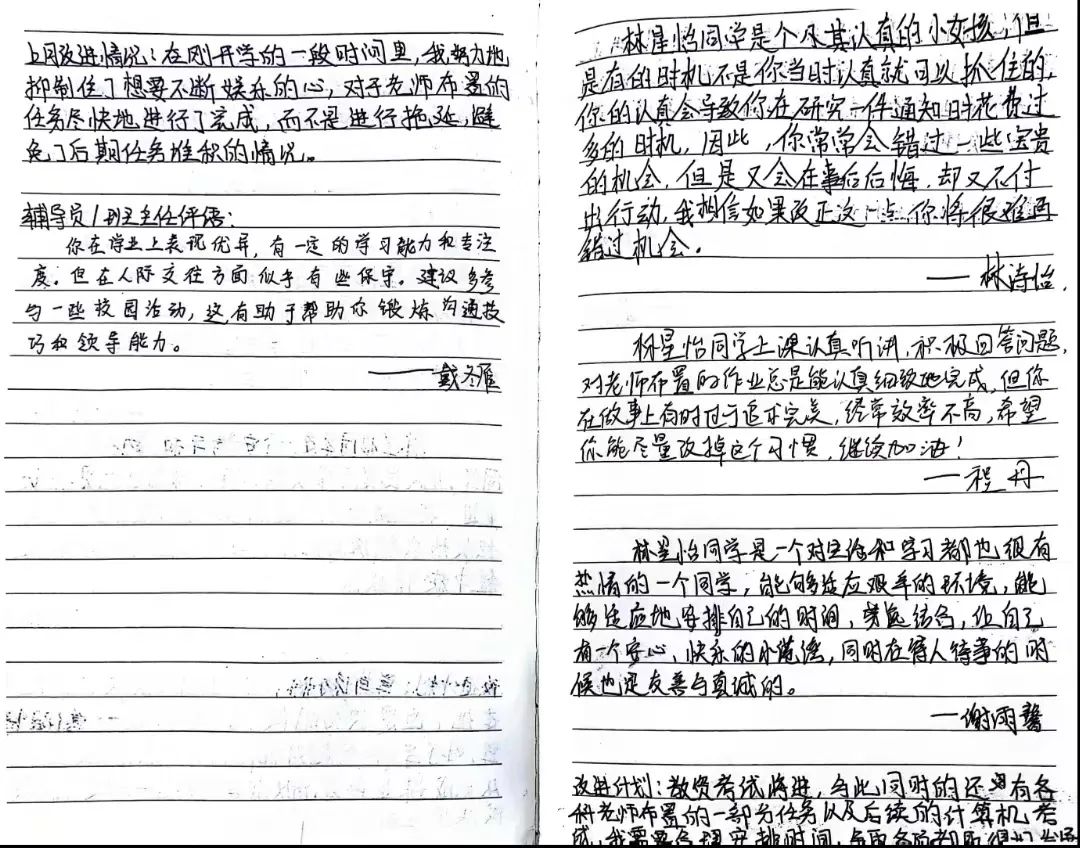 上周改进情况：在刚开学的一段时间里，我努力地
抑制住了想要不断娱乐的心，对于老师布置的
任务尽快地进行了完成，而不是进行拖延，避
免了后期任务堆积的情况。
辅导员/班主任评语：
你在学业上表现优异，有一定的学习能力和专注
度。但在人际交往方面似乎有些保守。建议多参
与一些校园活动，这有助于帮助你锻炼沟通技
巧和领导能力。
——戴冬雁
林星怡同学是个及其认真的小女孩，但
是有的时机不是你当时认真就可以抓住的，
你的认真会导致你在研究一件通知时花费过
多的时机，因此，你常常会错过一些宝贵
的机会，但是又会在事后后悔，却又不付
出行动，我相信如果改正这一点，你将很难再
错过机会。
——林诗怡
林星怡同学上课认真听讲，积极回答问题，
对老师布置的作业总是能认真细致地完成，但你
在做事上有时过于追求完美，经常效率不高，希望
你能尽量改掉这个习惯，继续加油！
——程丹
林星怡同学是一个对生活和学习都也很有
热情的一个同学，能够适应艰辛的环境，能
够适应地安排自己的时间，劳逸结合，让自己
有一个安心、快乐的小 ，同时在待人待事的时
候也是友善与真诚的。
——谢雨馨
改进计划：教资考试将进，与此同时的还有各
科老师布置的一部分任务以及后续的计算机考
试，我需要合理安排时间，